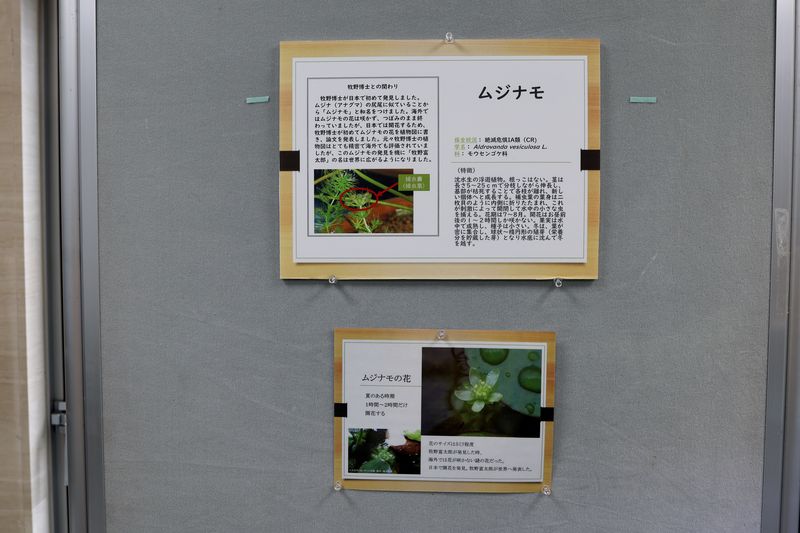 牧野博士との関わり
牧野博士が日本で初めて発見しました。
ムジナ（アナグマ）の尻尾に似ていることか
ら「ムジナモ」と和名をつけました。海外で
はムジナモの花は咲かず、つぼみのまま終
わっていましたが、日本では開花するため、
牧野博士が初めてムジナモの花を植物図に書
き、論文を発表しました。元々牧野博士の植
物図はとても精密で海外でも評価されていま
したが、このムジナモの発見を機に「牧野富
太郎」の名は世界に広がるようになりました。
捕虫嚢
（捕虫葉）
ムジナモ
絶滅危惧IA類（CR）
学名： Aldrovanda vesiculosa L.
科： モウセンゴケ科
（特徴）
沈水生の浮遊植物。根っこはない。茎は
長さ5～25cmで分枝しながら伸長し、
基部が枯死することで各枝が離れ、新し
い個体へと成長する。捕虫葉の葉身は二
枚貝のように内側に折りたたまれ、これ
が刺激によって開閉して水中の小さな虫
を捕える。花期は7～8月。開花はお昼前
後の1～2時間しか咲かない。果実は水
中で成熟し、種子は小さい。冬は、葉が
密に集合し、球状～楕円形の殖芽（栄養
分を貯蔵した芽）となり水底に沈んで冬
を越す。
ムジナモの花
夏のある時期
1時間～2時間だけ
開花する
花のサイズは5ミリ程度
牧野富太郎が発見した時、
海外では花が咲かない謎の花だった。
日本で開花を発見。牧野富太郎が世界へ発表した。